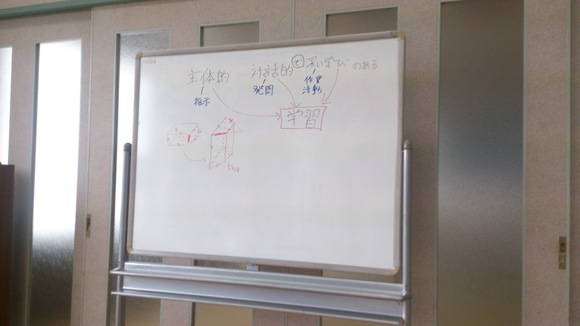 主体的 対話的 で 深い学び のある
指示 発問 作業
活動
学習